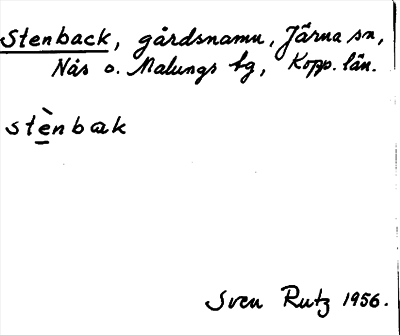 Stenback, gårdsnamn, Järna sn,
Nås o. Malungs tg, Kopp. län.
stὲnbak
Sven Rutz 1956.